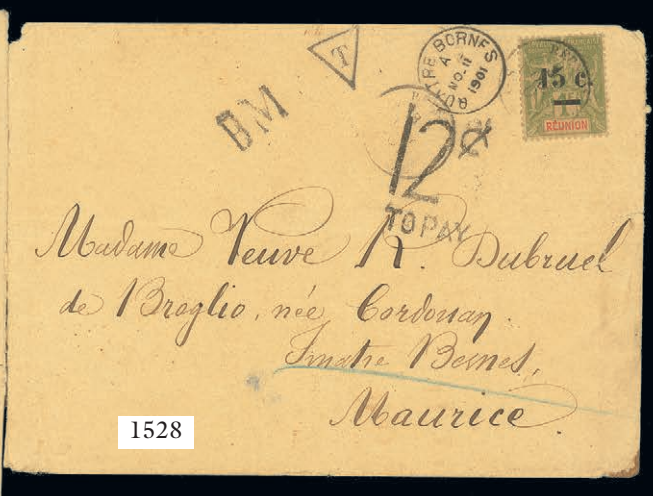 T
QUATRE BORNES
A
NO 11
1901
BM
15 c.
RÉUNION
12 c
TO PAY
Madame Veuve R. Dubruel
de Broglio, née Cordouan.
Quatre Bornes,
Maurice.
1528